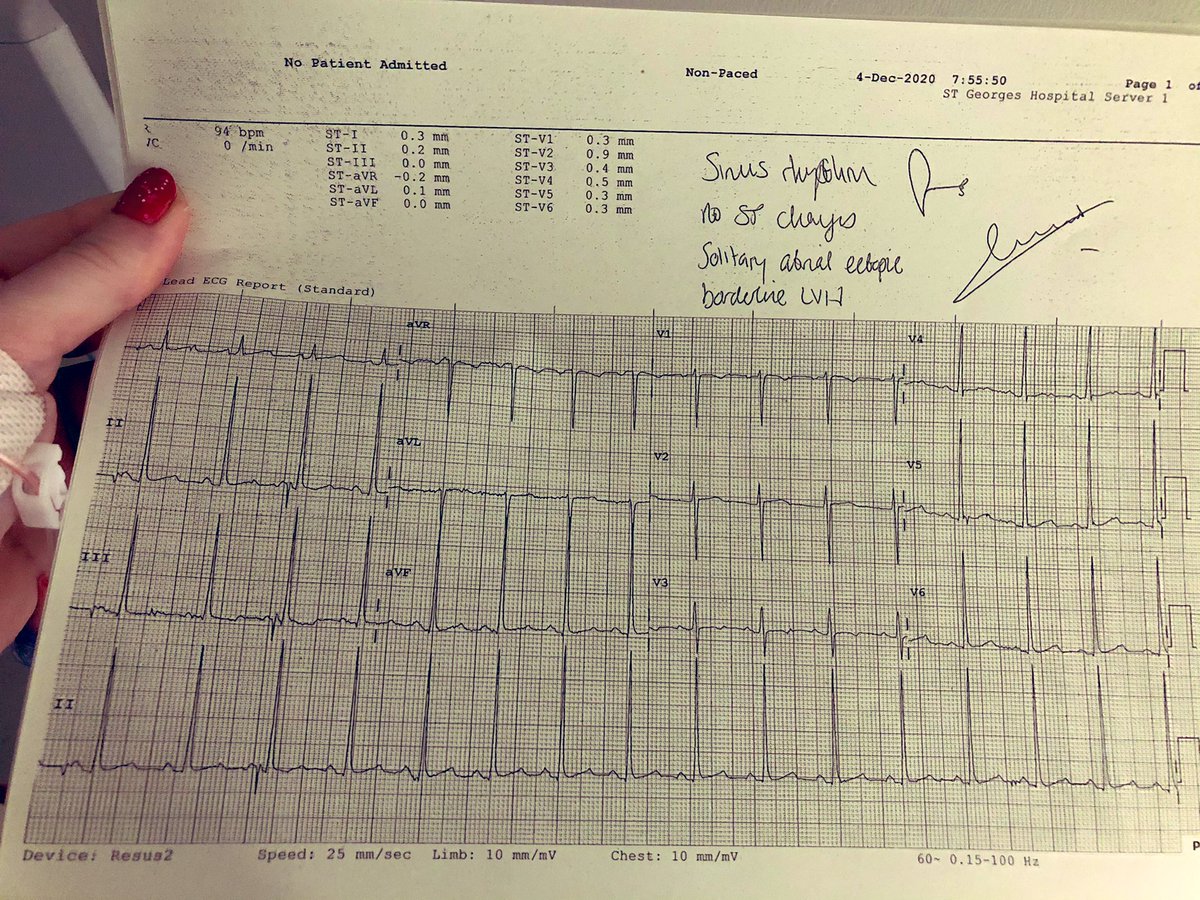 No Patient Admitted Non-Paced 4-Dec-2020 7:55:50 Page 1 of
ST Georges Hospital Server 1
R 94 bpm ST-I 0.3 mm ST-V1 0.3 mm
VC 0 /min ST-II 0.2 mm ST-V2 0.9 mm
ST-III 0.0 mm ST-V3 0.4 mm
ST-aVR -0.2 mm ST-V4 0.5 mm
ST-aVL 0.1 mm ST-V5 0.3 mm
ST-aVF 0.0 mm ST-V6 0.3 mm
Sinus rhythm
no ST changes
Solitary atrial ectopic
borderline LVH
Lead ECG Report (Standard)
aVR V1 V4
II aVL V2 V5
III aVF V3 V6
II
Device: Resus2 Speed: 25 mm/sec Limb: 10 mm/mV Chest: 10 mm/mV 60~ 0.15-100 Hz P